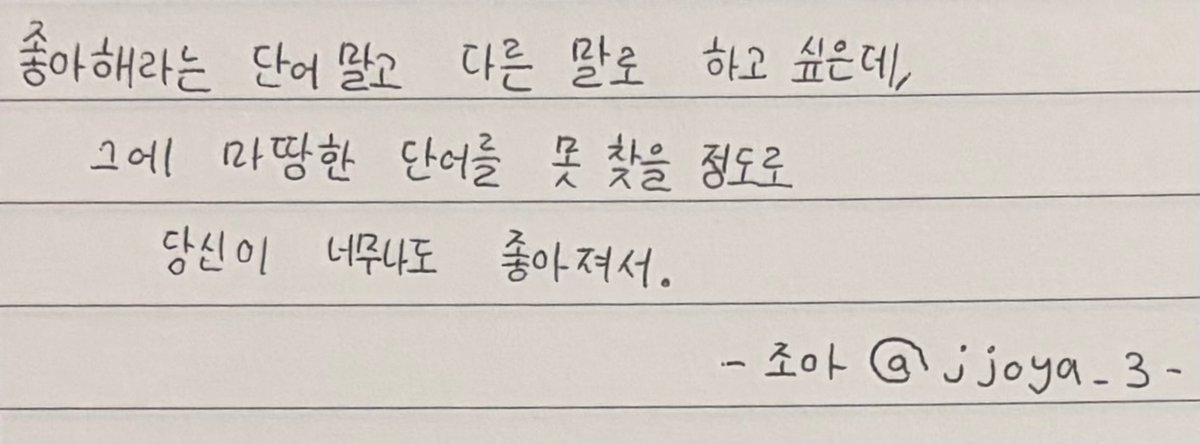 좋아해라는 단어 말고 다른 말로 하고 싶은데,
그에 마땅한 단어를 못 찾을 정도로
당신이 너무나도 좋아져서.
- 조아 @jjoya_3 -